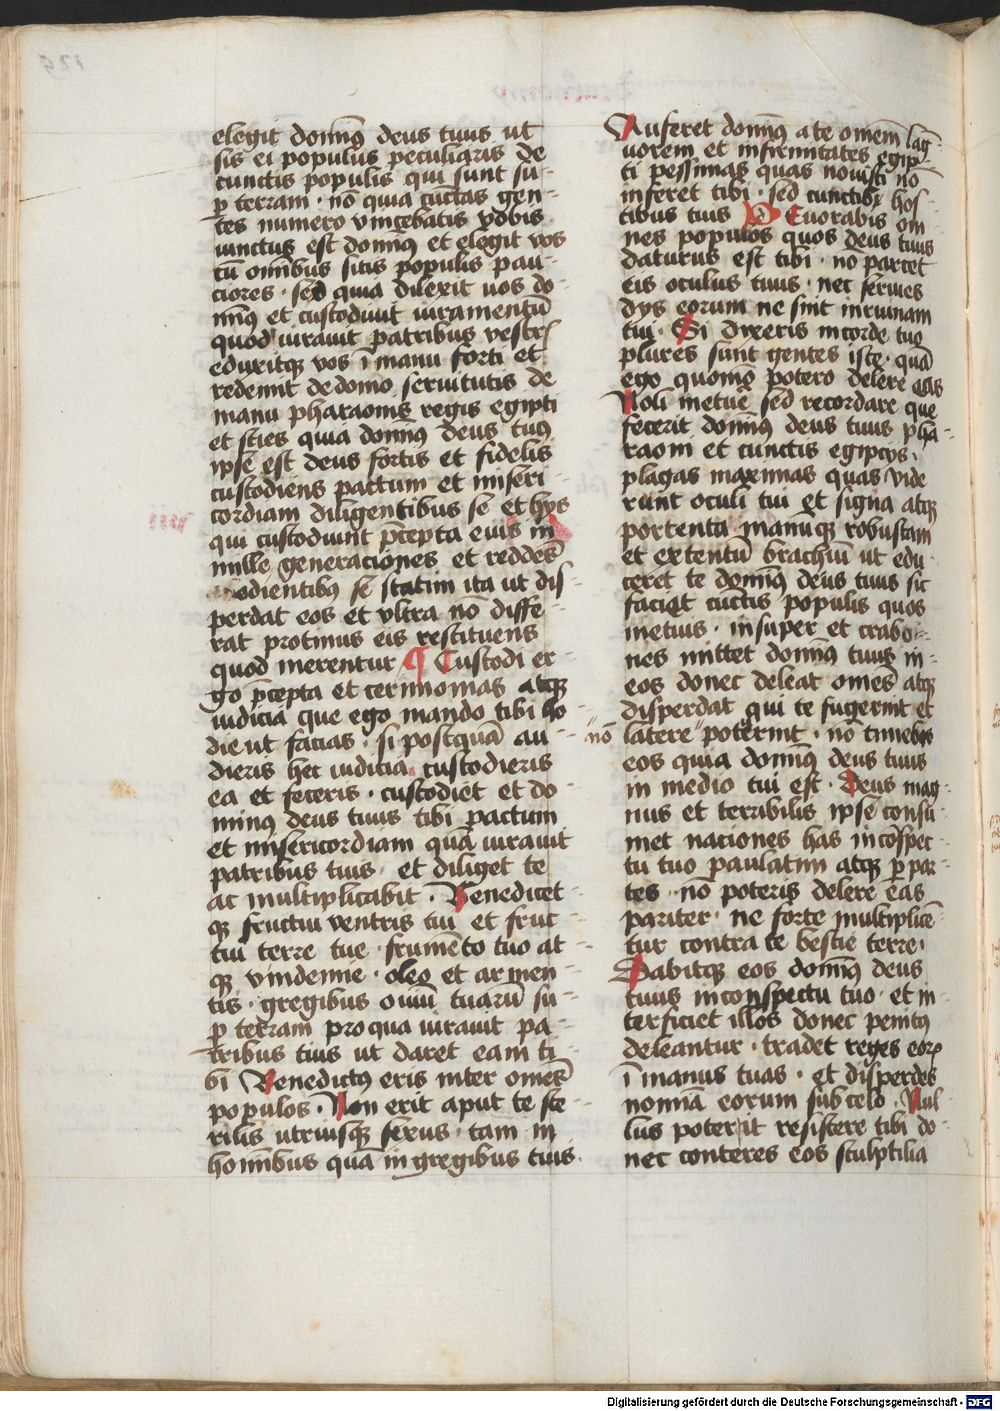 elegit domin9 deus tuus ut
sis ei populus peculiaris de
cunctis populis qui sunt su-
ꝑ terram · nō quia cūctas gen-
tes numero vincebatis vobis
iunctus est domin9 et elegit vos
cū omībus sitis populis pau-
ciores · sed quia dilexit uos do-
min9 et custodiuit iuramentū
quod iurauit patribus vestrꝭ
eduxitqꝫ vos ī manu forti et
redemit de domo seruitutis de
manu pharaonis regis egipti
et scies quia domin9 deus tu9
ipse est deus fortis et fidelis
custodiens pactum et miseri-
cordiam diligentibus se et hys
qui custodiunt p̄cepta eius in
mille generaciones et reddēs
odientibus se statim ita ut dis-
perdat eos et vltra nō diffe-
rat protinus eis restituens
quod merentur ¶ Custodi er-
go p̄cepta et cerimonias atqꝫ
iudicia que ego mando tibi ho-
die ut facias · si postquā au-
dieris hec iudicia custodieris
ea et feceris · custodiet et do-
minus deus tuus tibi pactum
et misericordiam quā iurauit
patribus tuis · et diliget te
ac multiplicabit · Benedicet-
qꝫ fructui ventris tui et fruc-
tui terre tue · frumēto tuo at-
qꝫ vindemie · oleo et armen-
tis · gregibus ouiū tuarū su-
ꝑ terram pro qua iurauit pa-
tribus tuis ut daret eam ti-
bi Benedictus eris inter omēs
populos · Non erit aput te ste-
rilis utriusqꝫ sexus · tam in
homībus quā in gregibus tuis ·
Auferet domin9 a te omēm lāg-
uorem et infirmitates egip-
ti pessimas quas nouisti nō
inferet tibi · sed cunctibꝫ hos-
tibus tuis Deuorabis om-
nes populos quos deus tuus
daturus est tibi · nō parcet
eis oculus tuus · nec seruies
dys eorum ne sint in ruinam
tui · Si dixeris in corde tuo
plures sunt gentes iste · quā
ego quomō potero delere eas
Noli metuē sed recordare que
fecerit domin9 deus tuus pha-
raoni et cunctis egipcys ·
plagas maximas quas vide
runt oculi tui et signa atqꝫ
portenta manuqꝫ robustam
et extentū brachiū ut edu-
ceret te domin9 deus tuus sic
faciet cūctis populis quos
metuis · insuper et crabo-
nes mittet domin9 tuus in
eos donec deleat omēs atqꝫ
disperdat qui te fugerint et
nō latere poterint · nō timebis
eos quia domin9 deus tuus
in medio tui est · Deus mag-
nus et terribilis ipse consu-
met naciones has in cōspec-
tu tuo paulatim atqꝫ ꝑ par-
tes · nō poteris delere eas
pariter · ne forte multiplicē-
tur contra te bestie terre ·
Dabitqꝫ eos domin9 deus
tuus in conspectu tuo · et in-
terficiet illos donec penit9
deleantur · tradet reges eoꝝ
ī manus tuas · et disperdes
nomīa eorum sub celo · Nul-
lus poterit resistere tibi do-
nec conteres eos sculptilia
Digitalisierung gefördert durch die Deutsche Forschungsgemeinschaft - DFG